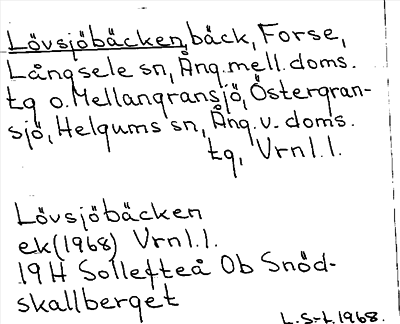 Lövsjöbäcken, bäck, Forse,
Långsele sn, Ång. mell. doms.
tg o. Mellangransjö, Östergran-
sjö, Helgums sn, Ång. v. doms.
tg, Vrnl.l.
Lövsjöbäcken
ek(1968) Vrnl.l.
19H Sollefteå Ob Snöd-
skallberget
L.S-t. 1968.